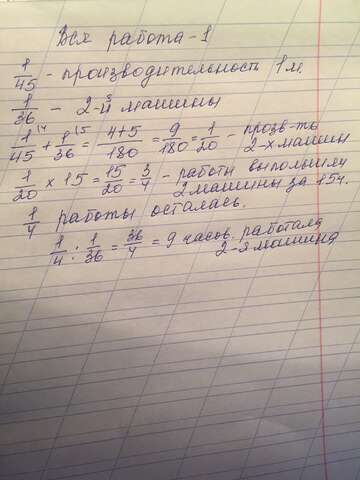 Вся работа - 1
1/45 - производительность 1 м.
1/36 - 2-й машины
1/45 + 1/36 = 4+5/180 = 9/180 = 1/20 - произв-ть 2-х машин
1/20 х 15 = 15/20 = 3/4 - работы выполнили
2 машины за 15ч.
1/4 работы осталась.
1/4 : 1/36 = 36/4 = 9 часов работала
2-я машина